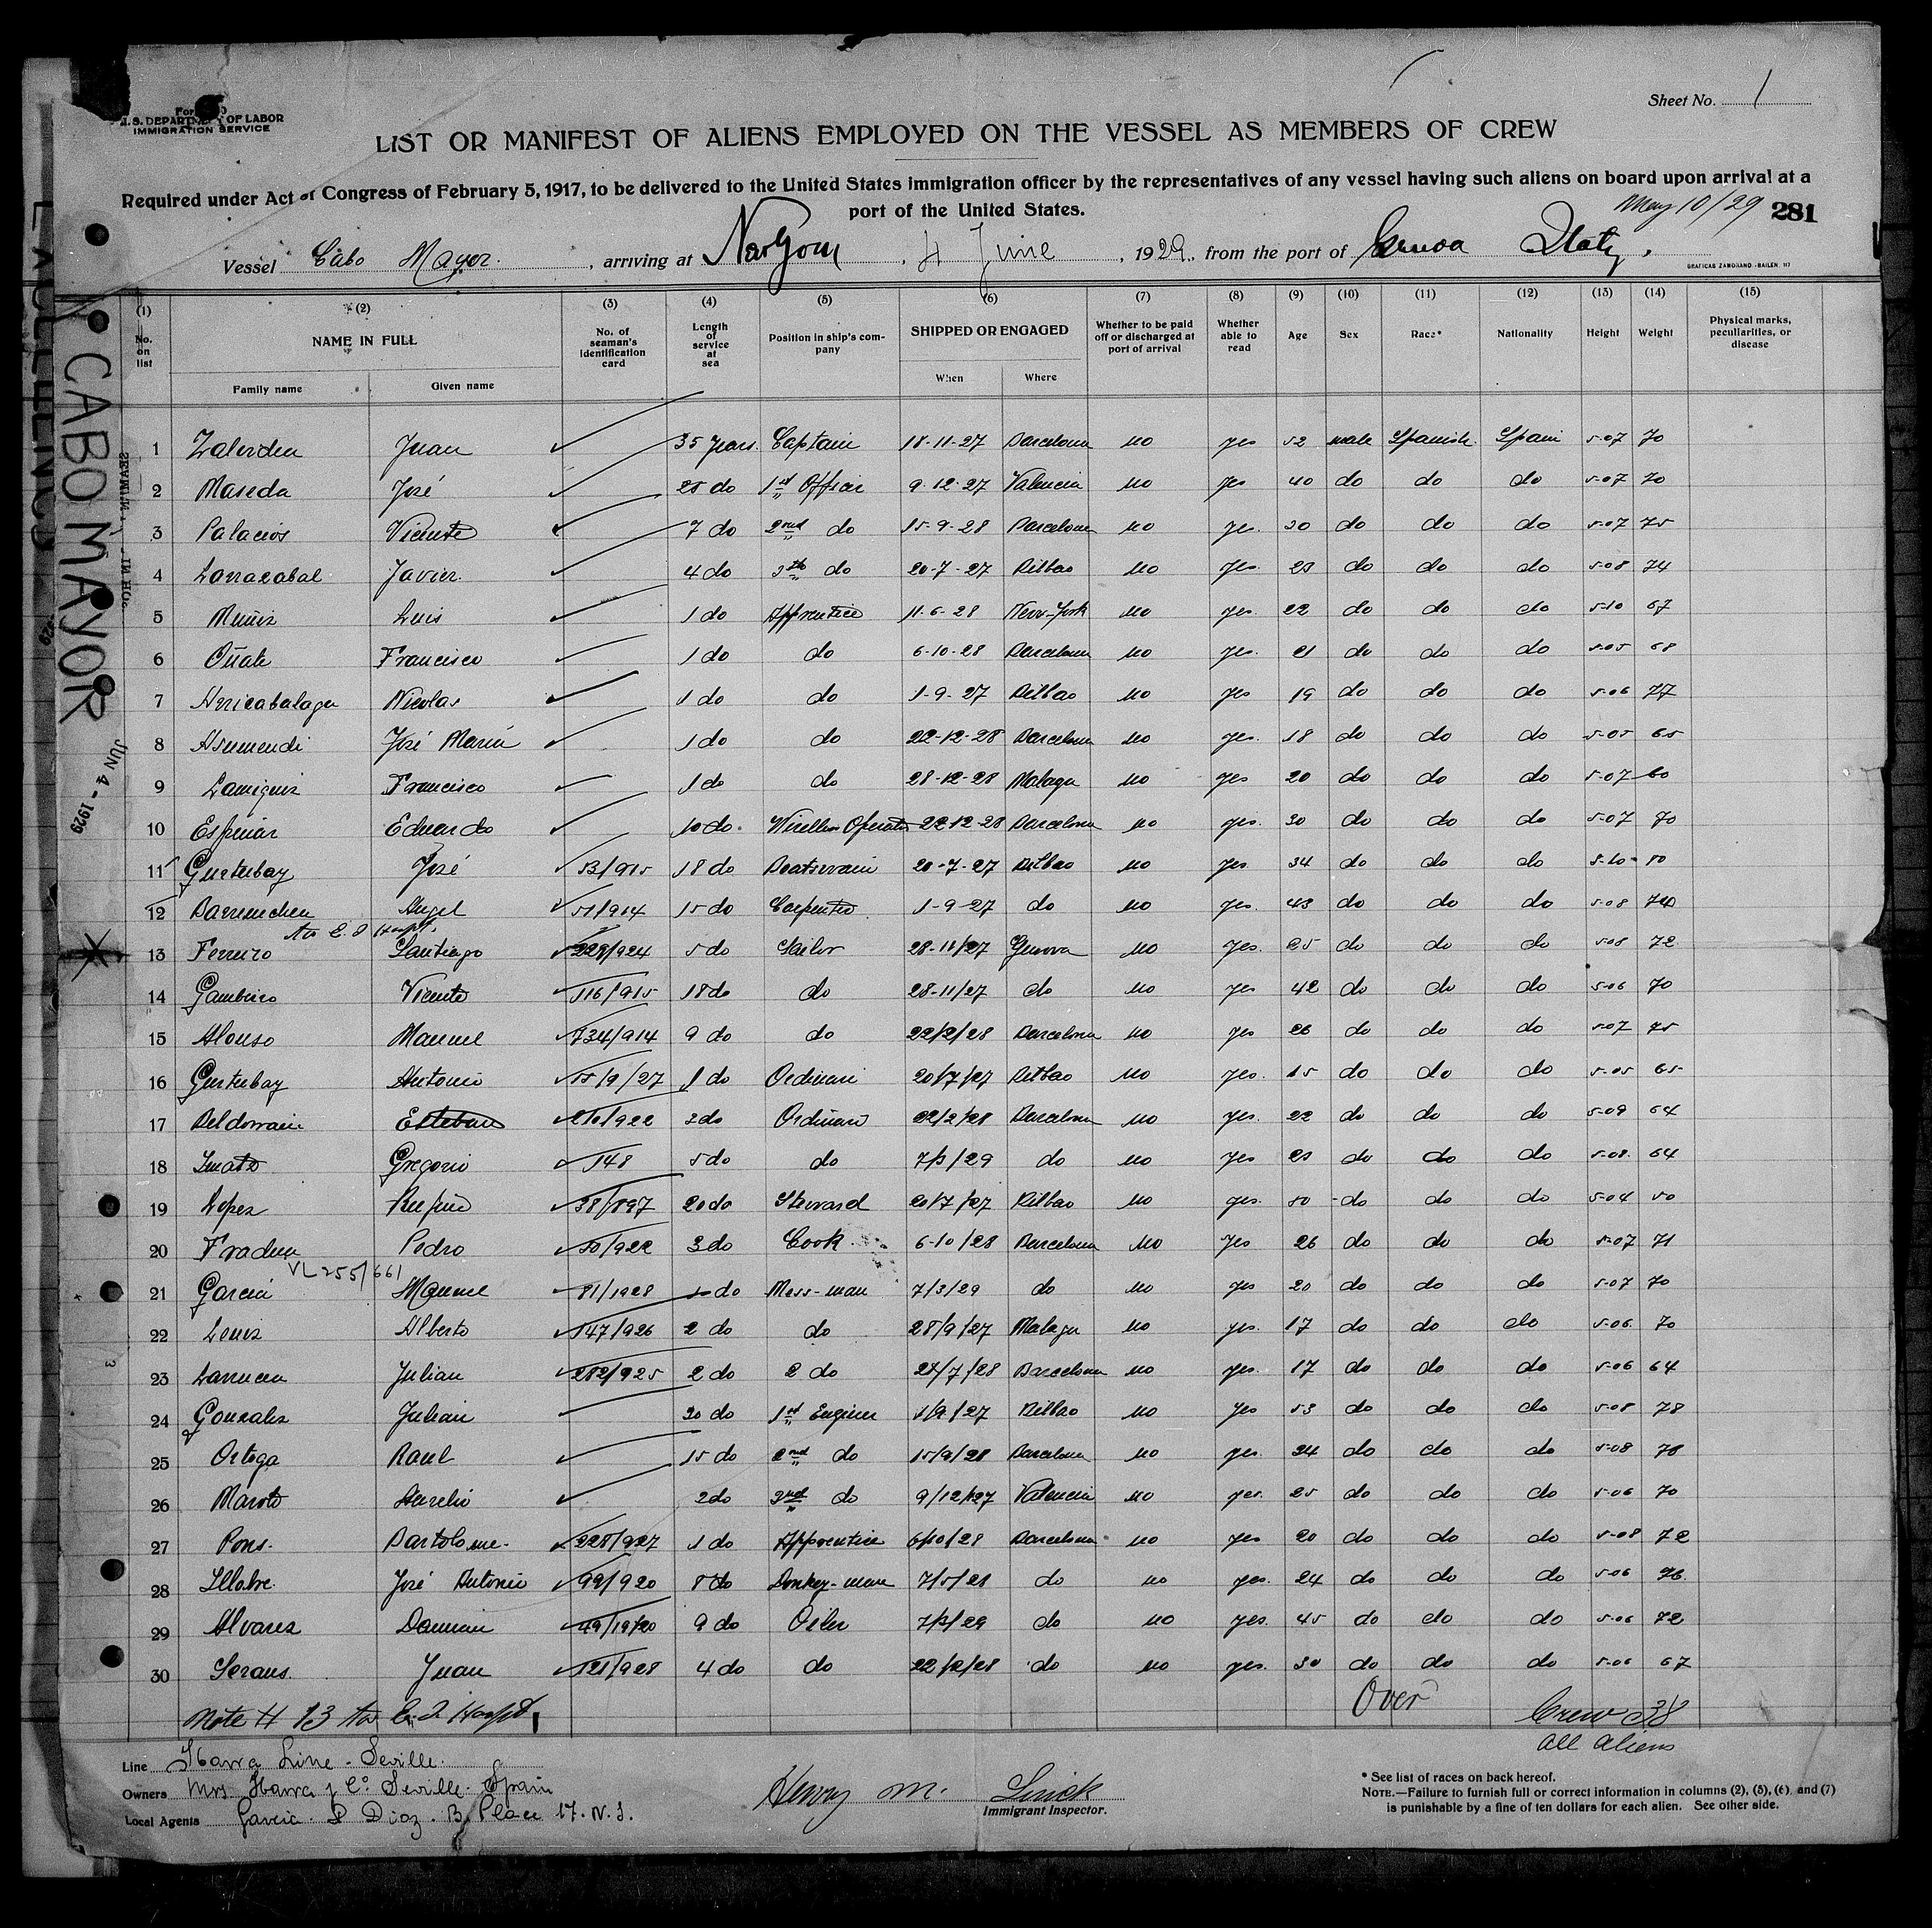 Sheet No. 1
U.S. DEPARTMENT OF LABOR
IMMIGRATION SERVICE
LIST OR MANIFEST OF ALIENS EMPLOYED ON THE VESSEL AS MEMBERS OF CREW
Required under Act of Congress of February 5, 1917, to be delivered to the United States immigration officer by the representatives of any vessel having such aliens on board upon arrival at a
port of the United States.
May 10/29 281
Vessel Cabo Mayor. , arriving at , 4 June , 1929, from the port of Genoa Italy.
GRAFICAS ZAMORANO - BAILEN, 117
(1) (2) (3) (4) (5) (6) (7) (8) (9) (10) (11) (12) (13) (14) (15)
No. on list NAME IN FULL Family name Given name No. of seaman's identification card Length of service at sea Position in ship's company SHIPPED OR ENGAGED When Where Whether to be paid off or discharged at port of arrival Whether able to read Age Sex Race* Nationality Height Weight Physical marks, peculiarities, or disease
1 Juan 35 years. Captain 18-11-27 Barcelona no yes 52 male Spanish Spain 5-07 70
2 Maseda José 25 do 1st Officer 9-12-27 Valencia no yes 40 do do do 5-07 70
3 Palacios Vicente 7 do 2nd do 15-9-28 Barcelona no yes. 30 do do do 5-07 75
4 Larrazabal Javier. 4 do 3th do 20-7-27 Bilbao no yes. 23 do do do 5-08 74
5 Muñiz Luis 1 do Apprentice 11-6-28 New-York no yes. 22 do do do 5-10 67
6 Oñate Francisco 1 do do 6-10-28 Barcelona no yes. 21 do do do 5-05 68
7 Arricabalaga Nicolas 1 do do 1-9-27 Bilbao no yes 19 do do do 5-06 77
8 Asumendi José Maria 1 do do 22-12-28 Barcelona no yes. 18 do do do 5-05 65
9 Francisco 1 do do 28-12-28 Malaga no yes 20 do do do 5-07 60
10 Espinar Eduardo 10 do. Wireless Operator 22-12-28 Barcelona no yes. 30 do do do 5-07 70
11 Gusturbay José 53/915 18 do Boatswain 20-7-27 Bilbao no yes 34 do do do 5-10 80
12 Barrenechea Angel 51/914 15 do Carpenter 1-9-27 do no yes. 43 do do do 5-08 74
13 Ferreiro Santiago 229/924 5 do Sailor 28-11/27 Genova no yes. 25 do do do 5-08 72
14 Gambeiro Vicente 116/915 18 do do 28-11/27 do no yes 42 do do do 5-06 70
15 Alonso Manuel 734/914 9 do do 22/12/28 Barcelona no yes 26 do do do 5-07 75
16 Gusturbay Antonio 15/9/27 1 do Ordinari 20/7/27 Bilbao no yes. 15 do do do 5-05 65
17 Beldorrain Esteban 210/922 3 do Ordinari 22/2/28 Barcelona no yes. 22 do do do 5-09 64
18 Gregorio 148 5 do do 7/3/29 do no yes 23 do do do 5-08. 64
19 Lopez Rufino 38/897 20 do Steward 20/7/27 Bilbao no yes. 50 do do do 5-04 50
20 Fradua Pedro 50/922 3 do Cook 6-10/28 Barcelona no yes 26 do do do 5-07 71
VL 255/661
21 Garcia Manuel 81/1928 1 do Mess-man 7/3/29 do no yes 20 do do do 5-07 70
22 Alberto 147/926 2 do do 28/9/27 Malaga no yes. 17 do do do 5-06. 70
23 Larrucea Julian 282/925 2 do 2 do 24/7/28 Barcelona no yes. 17 do do do 5-06 64
24 Gonzalez Julian 30 do 1st Engineer 1/9/27 Bilbao no yes 53 do do do 5-08 78
25 Ortega Raul 15 do 2nd do 15/9/28 Barcelona no yes. 34 do do do 5-08 78
26 Maroto Aurelio 2 do 3rd do 9/12/27 Valencia no yes. 25 do do do 5-06 70
27 Pons. Bartolome. 228/927 1 do Apprentice 6/10/28 Barcelona no yes 20 do do do 5-08 72
28 José Antonio 99/920 8 do Donkey-man 7/5/28 do no yes. 24 do do do 5-06 76.
29 Alvarez Damian 49/1920 9 do Oiler 7/3/29 do no yes. 45 do do do 5-06 72
30 Juan 121/928 4 do do 22/12/28 do no yes. 30 do do do 5-06 67
Note # 13 to E.I. Hospt.
Over
Crew 38
all aliens
Line Ibarra Line - Seville.
Owners Mrs Ibarra y Cº Seville - Spain
Local Agents Garcia & Diaz. B. Place 17. N.
Henry M.
Immigrant Inspector.
* See list of races on back hereof.
NOTE.—Failure to furnish full or correct information in columns (2), (5), (6) and (7)
is punishable by a fine of ten dollars for each alien. See other side.
CABO MAYOR
JUN 4 - 1929